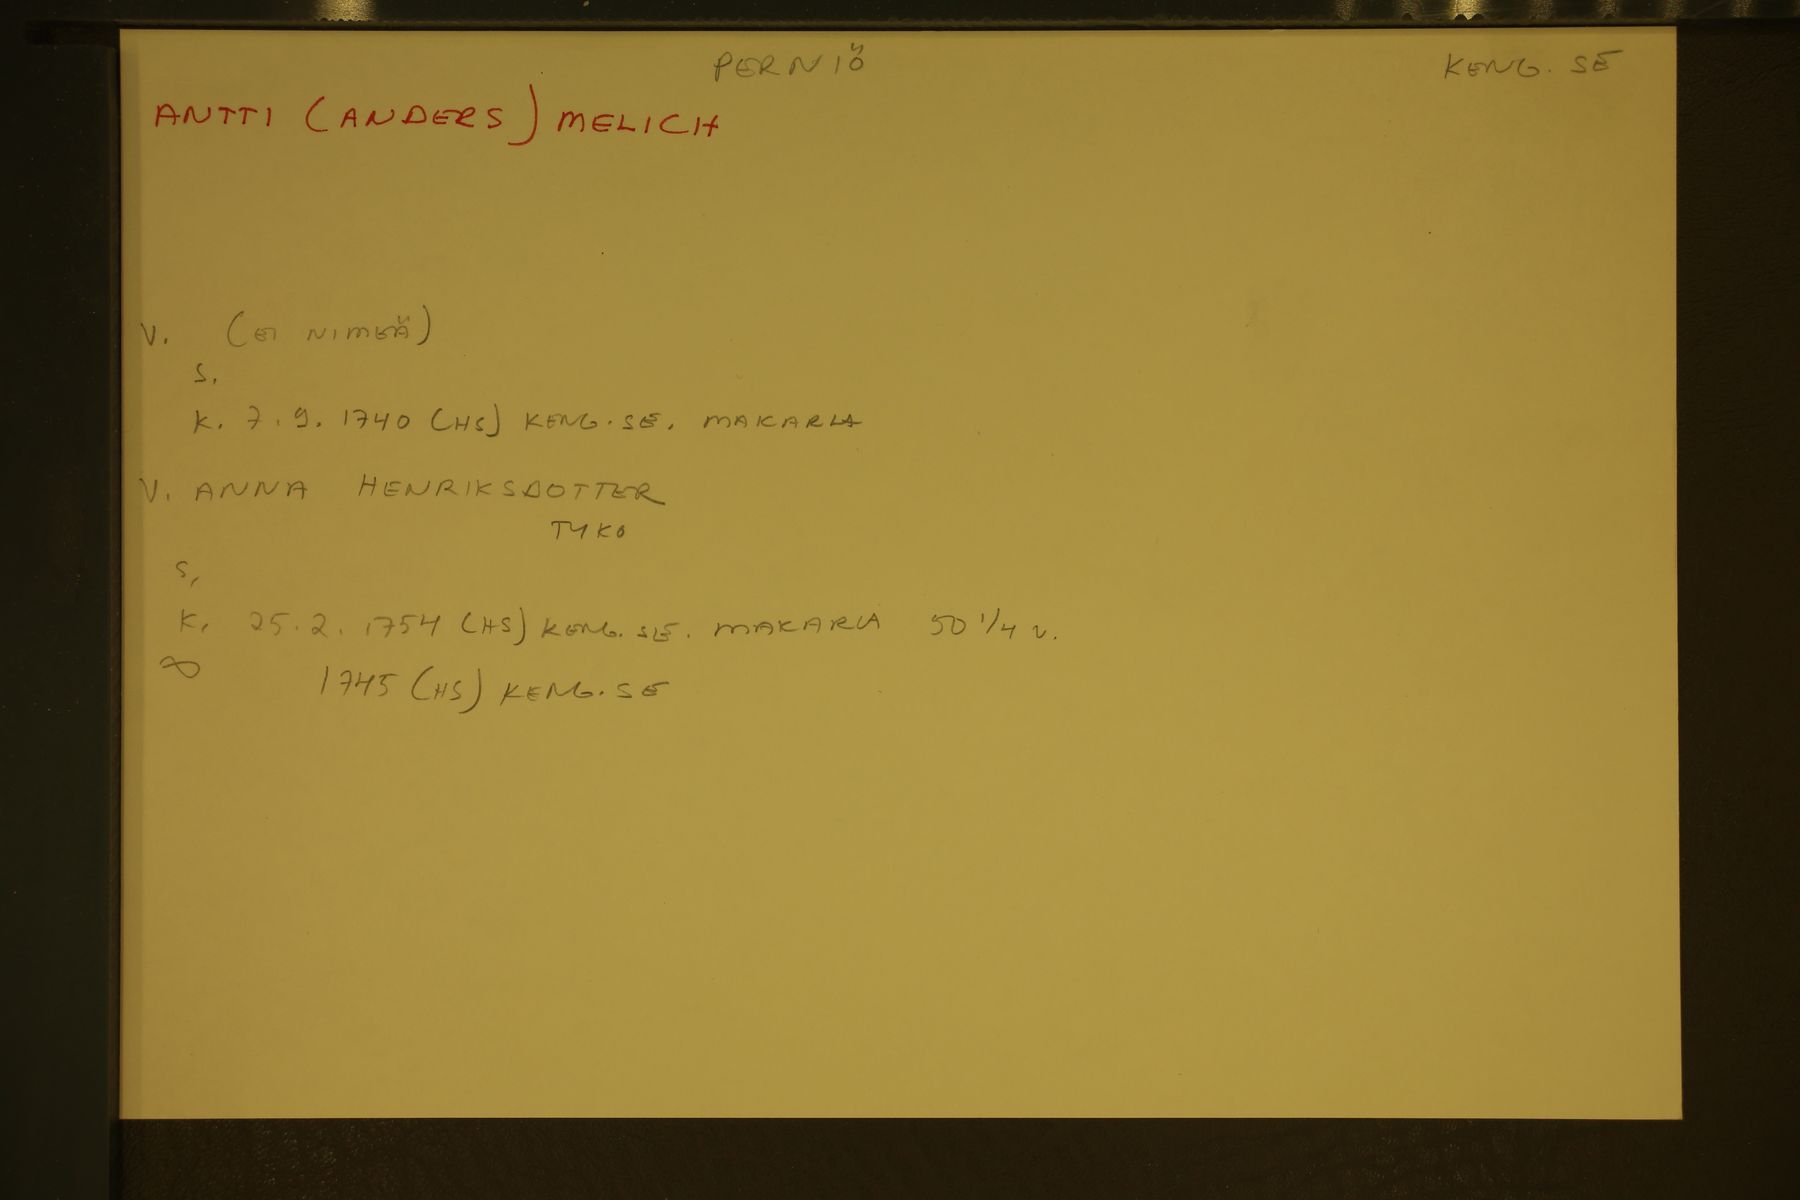 PERNIÖ KENG. SE
ANTTI (ANDERS) MELICH
V. (EI NIMEÄ)
S.
K. 7.9. 1740 (HS) KENG. SE. MAKARLA
V. ANNA HENRIKSDOTTER
TYKO
S.
K. 25.2. 1754 (HS) KENG. SE. MAKARLA 50 1/4 v.
∞ 1745 (HS) KENG. SE